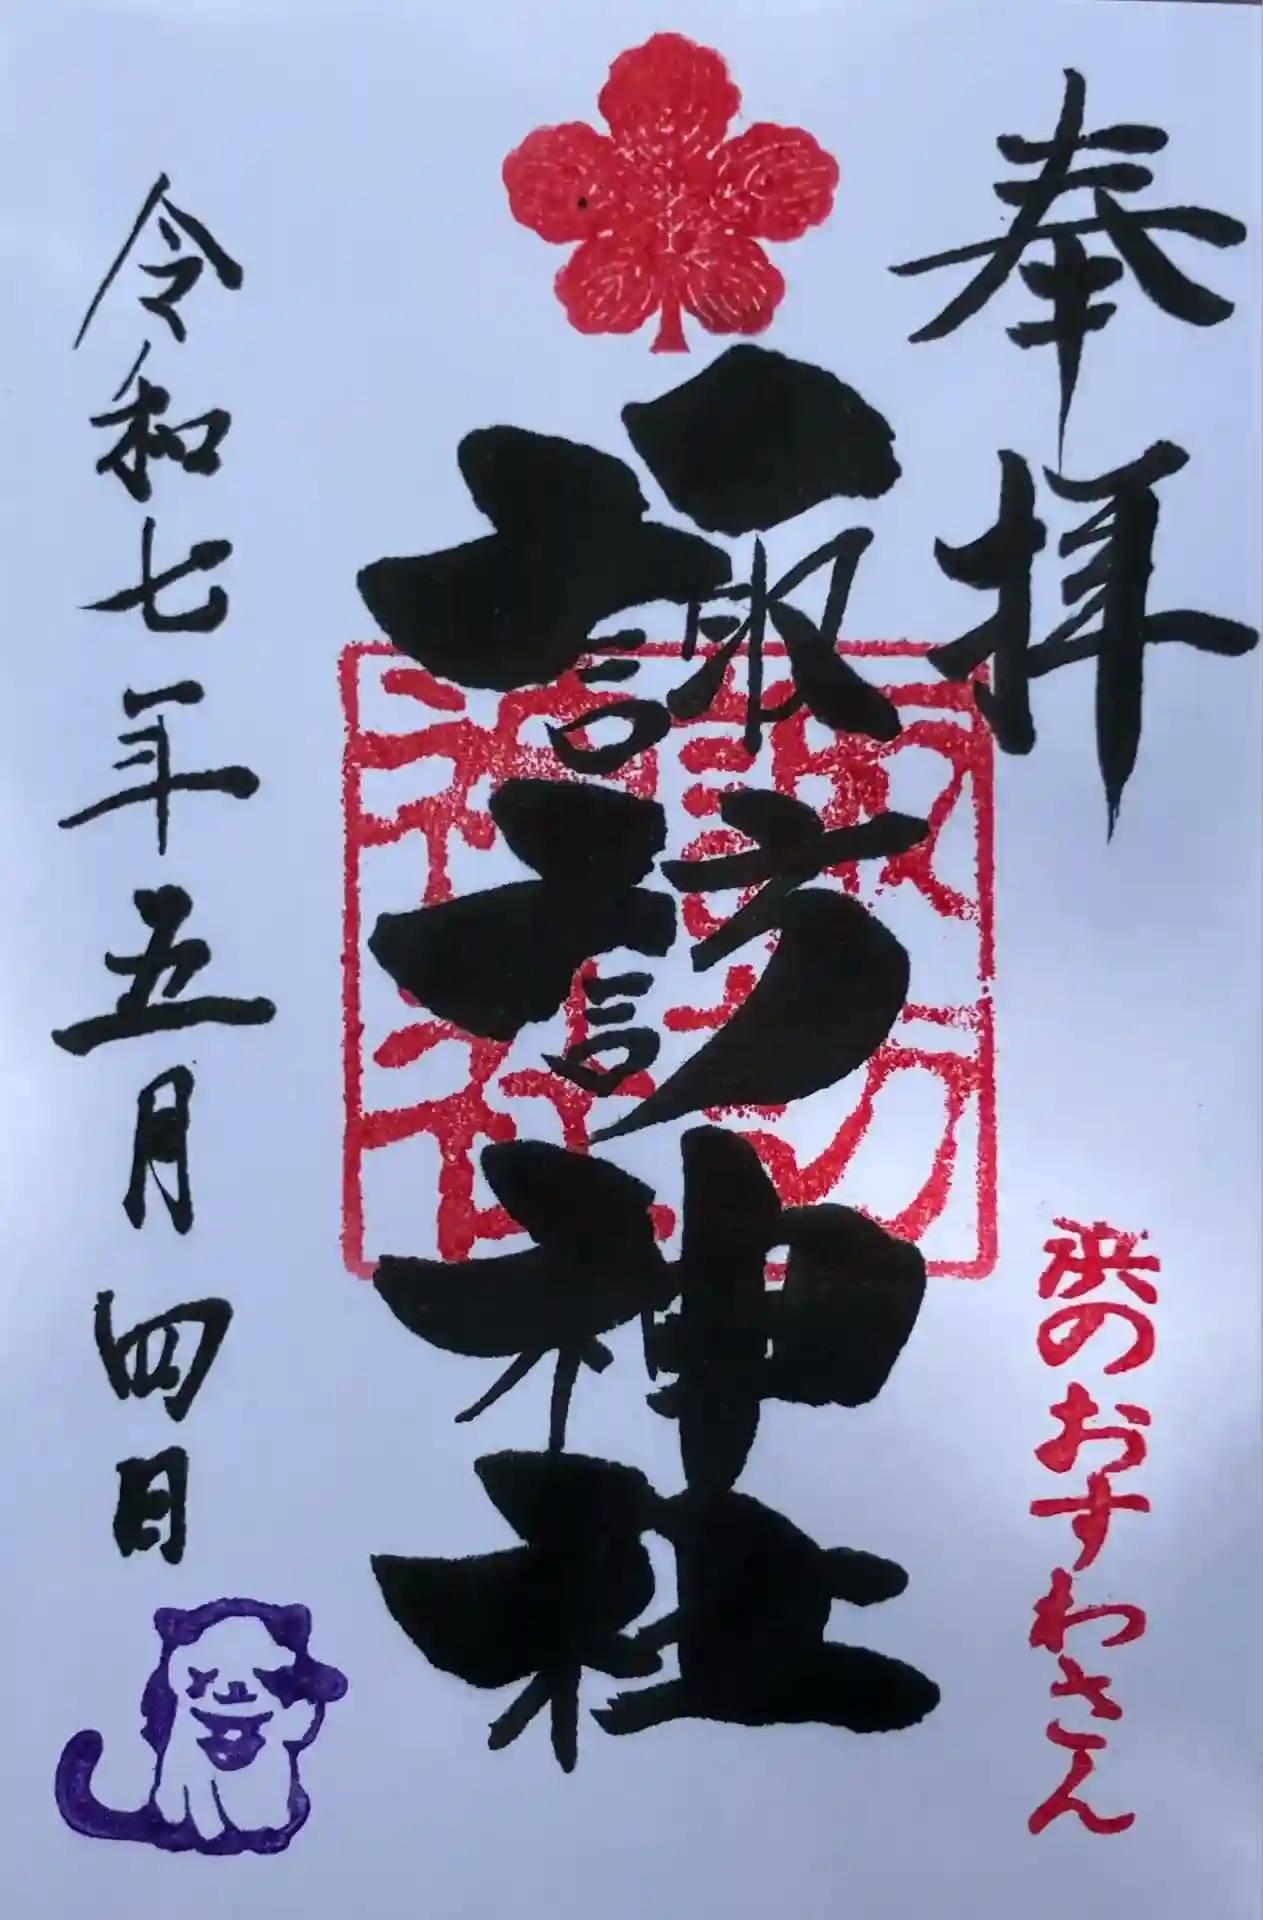 奉拝
浜のおすわさん
諏訪神社
諏訪神社
令和七年五月四日